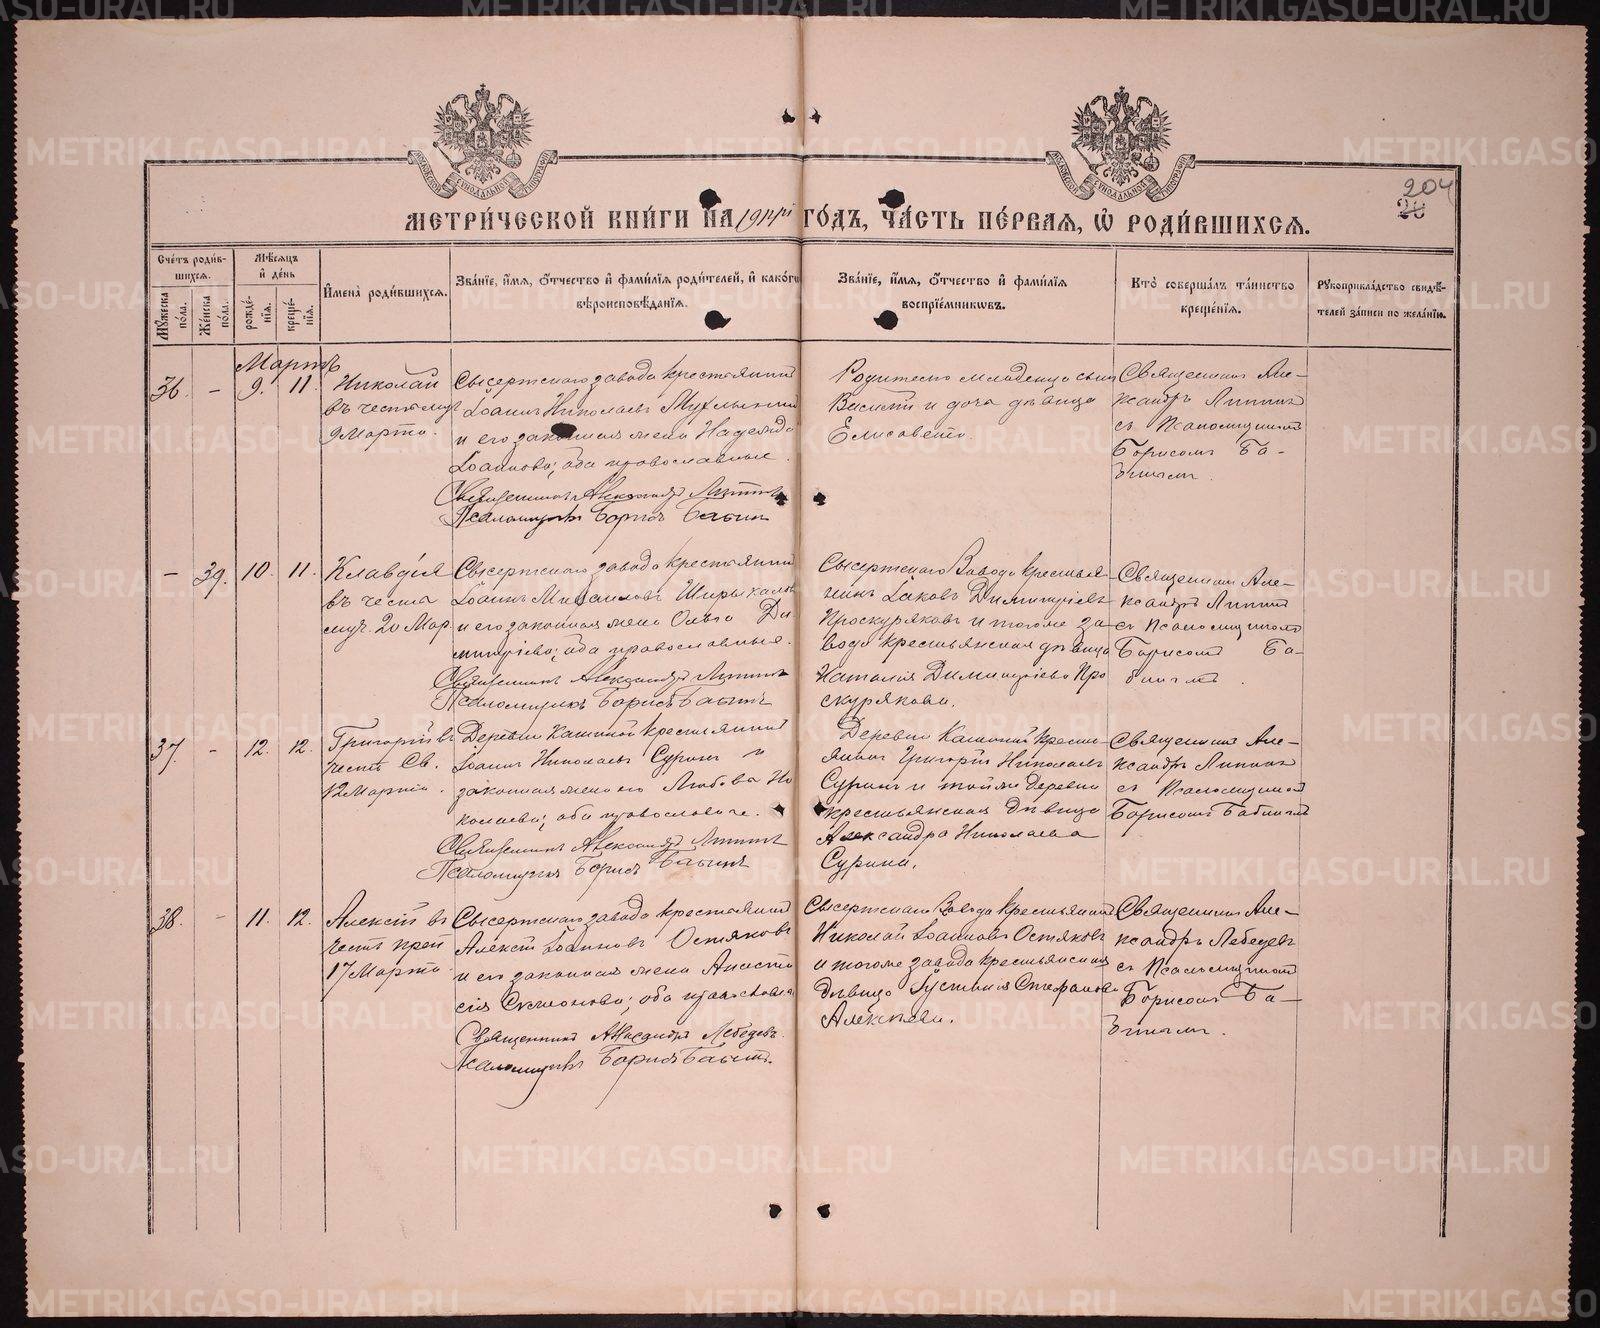 204
20
МЕТРИ́ЧЕСКОЙ КНИ́ГИ НА ГО́ДЪ, ЧА́СТЬ ПЕ́РВАЯ, Ѡ РОДИ́ВШИХСЯ.
Сче́тъ роди́в-
шихся.
Му́жеска
по́ла.
Же́нска
по́ла.
Мѣ́сяцъ
и де́нь
рожде́-
нїя.
креще́-
нїя.
Имена̀ роди́вшихся.
Зва́нїе, и́мя, о́тчество и фами́лїя роди́телей, и како́гѡ
вѣроисповѣ́данїя.
Зва́нїе, и́мя, о́тчество и фами́лїя
воспрїе́мникѡвъ.
Кто̀ соверша́лъ та́инство
креще́нїя.
Рукоприкла́дство свидѣ́-
телей за́писи по жела́нїю.
Мартъ
36. - 9. 11.
Николай
въ честь муч.
9 Марта.
Сысертскаго завода крестьянинъ
Іоаннъ Николаевъ
и его законная жена Надежда
Іоаннова; оба православные.
Священникъ Александръ
Псаломщикъ Борисъ Бабинъ
Родителю младенца сынъ
Василій и дочь дѣвица
Елисавета.
Священникъ Але-
ксандръ
съ Псаломщикомъ
Борисомъ Ба-
бинымъ.
- 39. 10. 11.
Клавдія
въ честь
муч. 20 Мар.
Сысертскаго завода крестьянинъ
Іоаннъ Михаиловъ Ширыкаловъ
и его законная жена Ольга Ди-
митріева; оба православные.
Священникъ Александръ
Псаломщикъ Борисъ Бабинъ
Сысертскаго Завода крестья-
нинъ Іаковъ Димитріевъ
Проскуряковъ и тогоже за-
вода крестьянская дѣвица
Наталія Димитріева Про
скурякова.
Священникъ Але-
ксандръ
съ Псаломщикомъ
Борисомъ Ба-
бинымъ.
37. - 12. 12.
Григорій въ
честь Св.
12 Марта.
Деревни Кашиной крестьянинъ
Іоаннъ Николаевъ Суринъ и
законная жена его Любовь Ни
колаева; оба православные.
Священникъ Александръ
Псаломщикъ Борисъ Бабинъ
Деревни Кашиной кресть-
янинъ Григорій Николаевъ
Суринъ и той же деревни
крестьянская дѣвица
Александра Николаева
Сурина.
Священникъ Але-
ксандръ
съ Псаломщикомъ
Борисомъ Бабинымъ
38. - 11. 12.
Алексій въ
честь преп.
17 Марта.
Сысертскаго завода крестьянинъ
Алексій Іоанновъ Остяковъ
и его законная жена Анаста
сія Симеонова; оба православные
Священникъ Александръ Лебедевъ
Псаломщикъ Борисъ Бабинъ.
Сысертскаго Завода крестьянинъ
Николай Іоанновъ Остяковъ
и тогоже завода крестьянская
дѣвица Іустинія Стефанова
Алексѣева.
Священникъ Але-
ксандръ Лебедевъ
съ Псаломщикомъ
Борисомъ Ба-
бинымъ.
METRIKI.GASO-URAL.RU